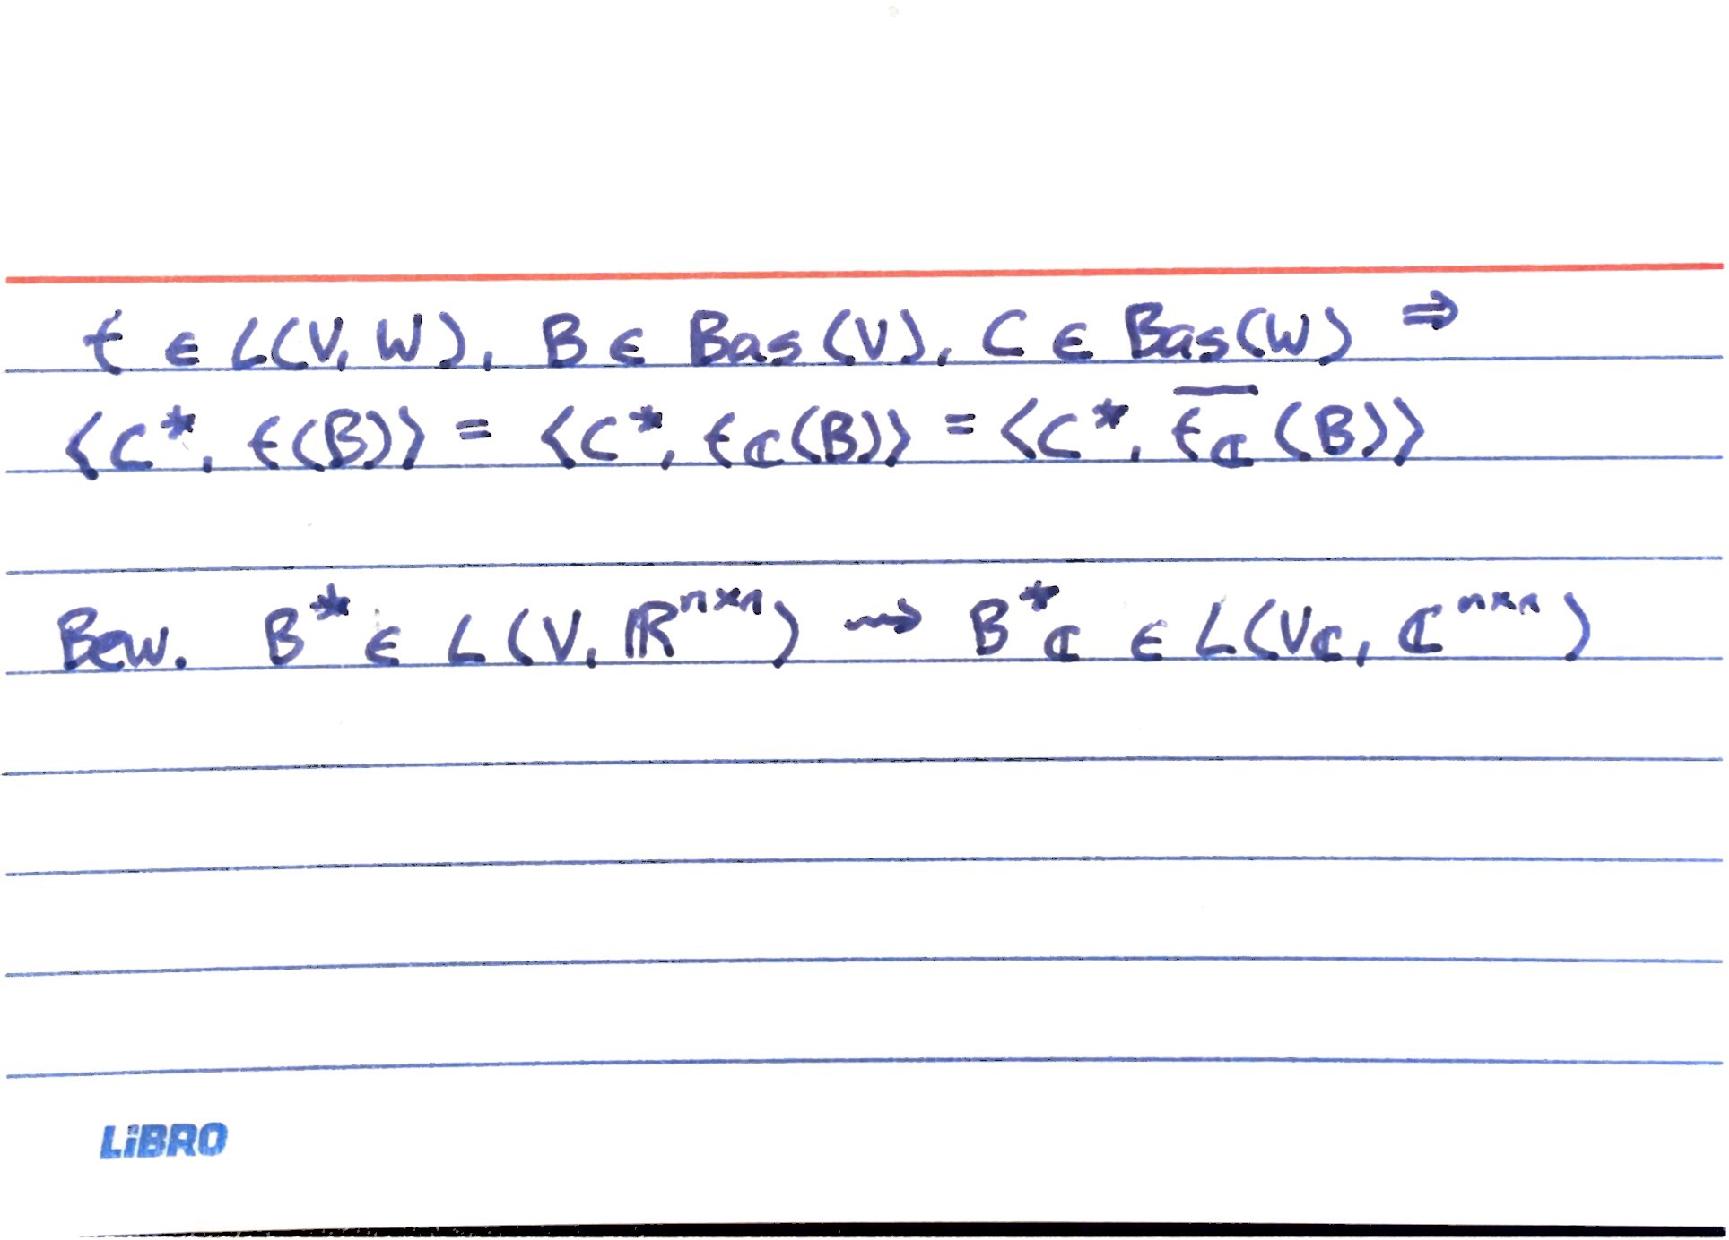 f ∈ L(V, W), B ∈ Bas(V), C ∈ Bas(W) ⇒
⟨C*, f(B)⟩ = ⟨C*, f_ℂ(B)⟩ = ⟨C*, \overline{f_ℂ}(B)⟩
Bew. B* ∈ L(V, ℝ^{n×n}) ⇝ B*_ℂ ∈ L(V_ℂ, ℂ^{n×n})
LiBRO